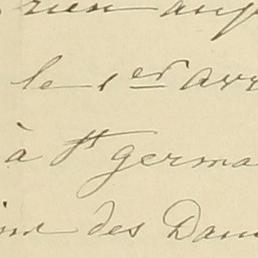 rien auj
le 1er avr
à St germa
des Dam